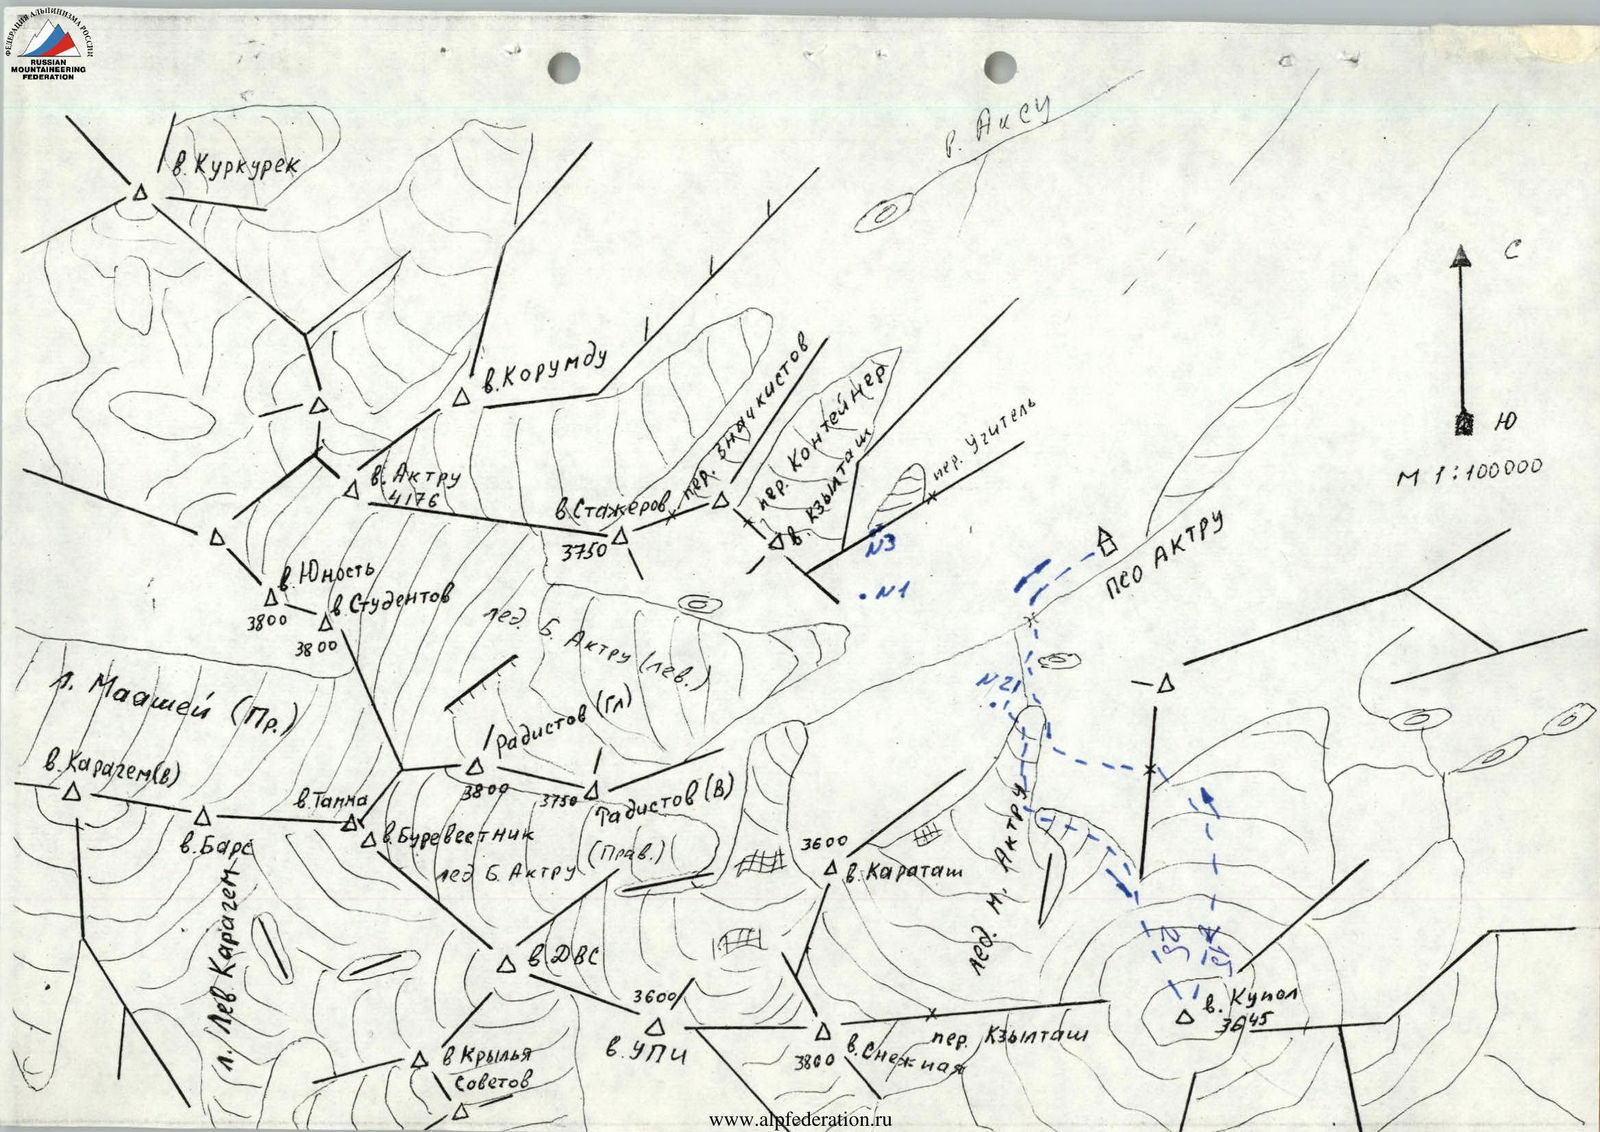 ФЕДЕРАЦИЯ АЛЬПИНИЗМА РОССИИ
RUSSIAN
MOUNTAINEERING
FEDERATION
р. Аксу
в. Куркурек
С
Ю
М 1:100000
в. Корумду
пер. Значкистов
пер. Контейнер
пер. Учитель
в. Кзылташ
в. Актру
4176
в. Стажеров
3750
N3
N1
ПСО АКТРУ
в. Юность
3800
в. Студентов
3800
лед. Б. Актру (лев.)
л. Маашей (Пр.)
N21
Радистов (Гл)
3800
в. Карагем(в)
3750
Радистов (В)
в. Тамма
в. Барс
в. Буревестник
лед Б. Актру (Прав.)
3600
в. Караташ
лед. М. Актру
л. Лев. Карагем
в. ДВС
3600
в. УПИ
в. Снежная
3800
пер. Кзылташ
в. Купол
3645
в Крылья
Советов
www.alpfederation.ru